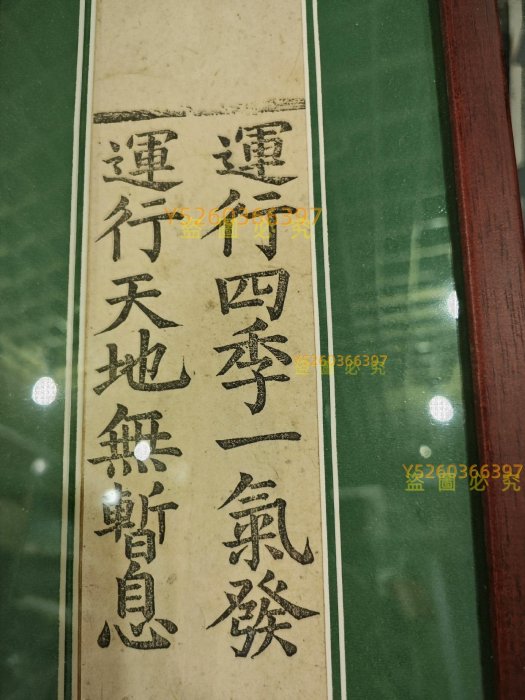 運行四季一氣發
運行天地無暫息
Y5260366397
盜圖必究
Y5260366397
盜圖必究
Y5260366397
盜圖必究